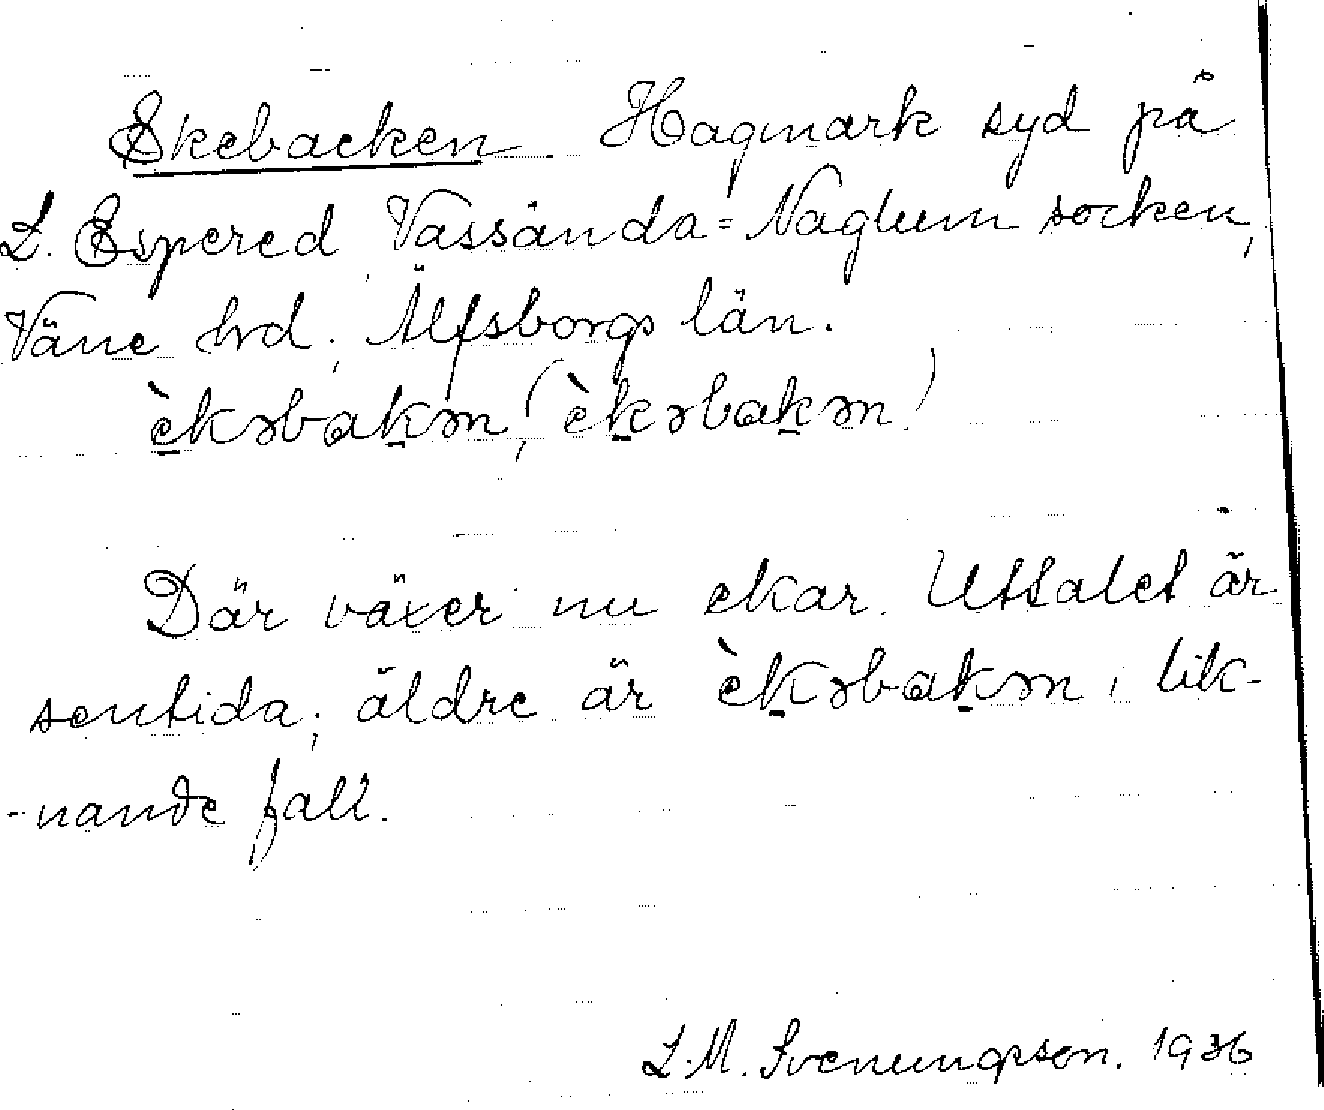 Ekebacken Hagmark syd på
L. Espered, Vassända=Naglum socken,
Väne hrd; Älfsborgs län.
èkəbakən, (èkəbakən)
Där växer nu ekar. Uttalet är
sentida; äldre är èkəbakən i lik-
-nande fall.
L.M. Svenungsson. 1936